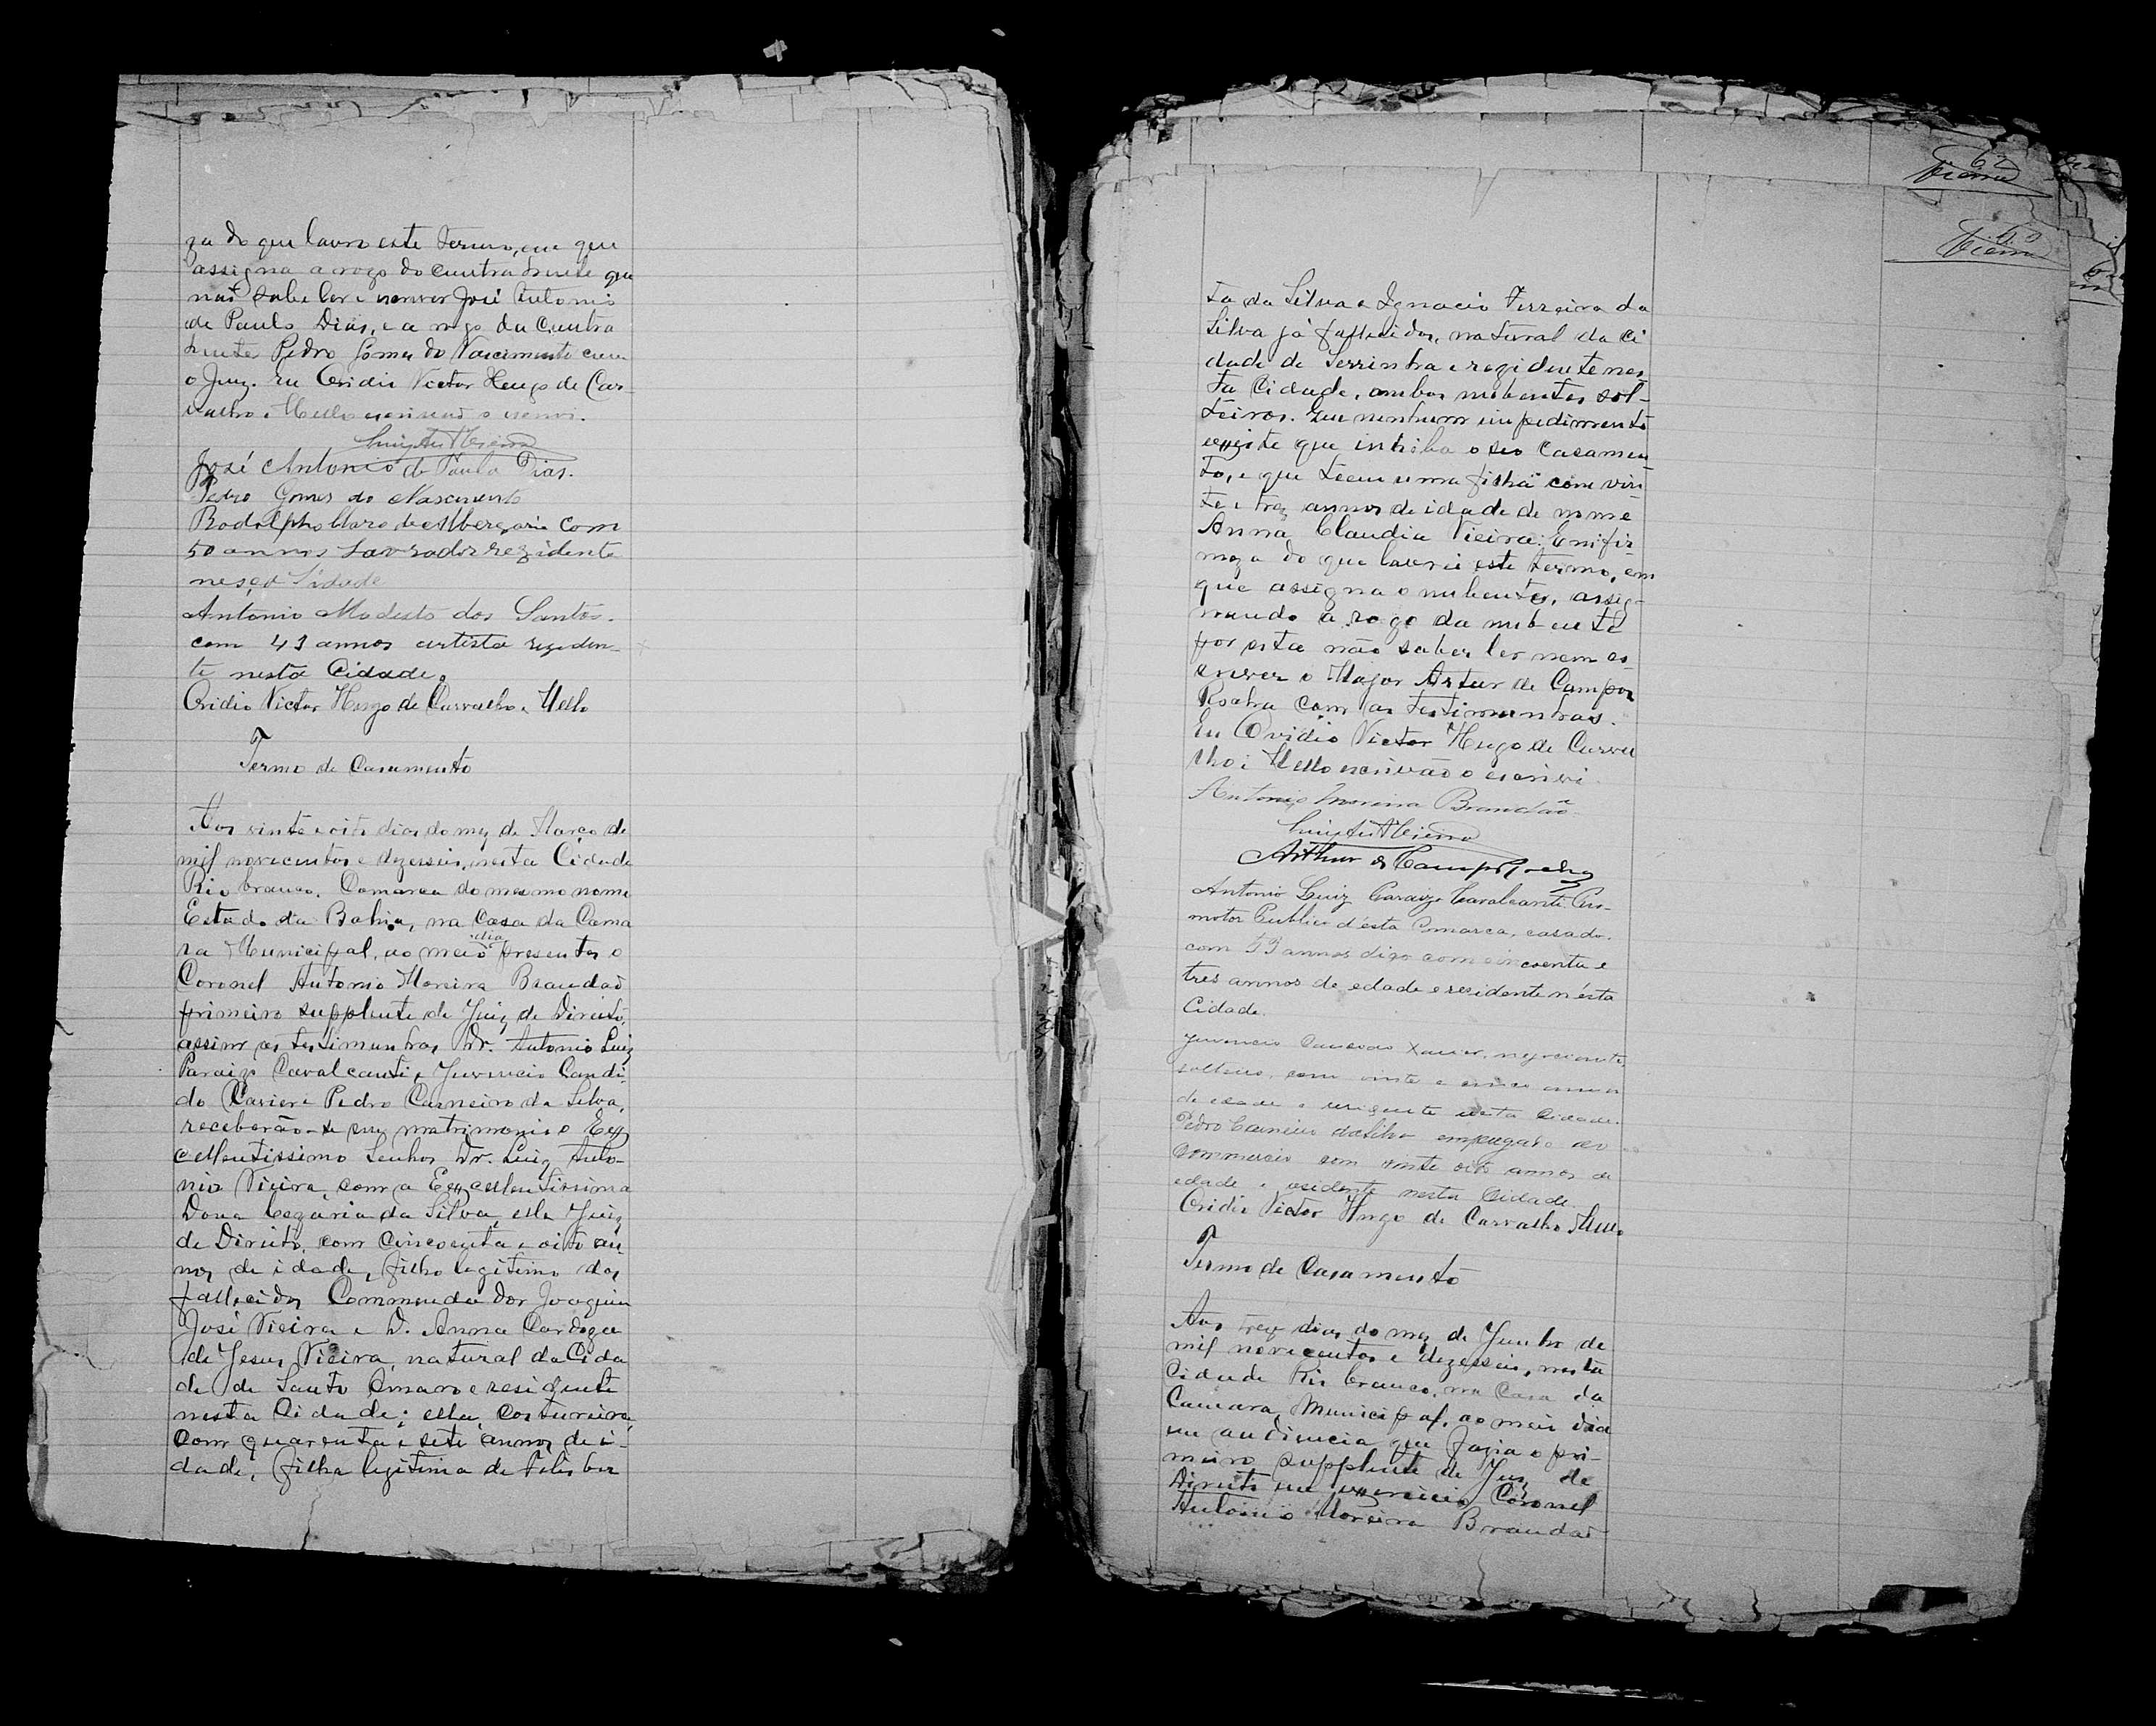 za do que lavro este termo, em que
assigna a rogo do contrahente que
não sabe ler e escrever José Antonio
de Paula Dias, e a rogo da Contra
hente Pedro Gomes do Nascimento com
o Juiz. Eu Ovidio Victor Hugo de Car-
valho e Mello escrivão o escrevi.
José Antonio de Paula Dias.
Pedro Gomes do Nascimento
Rodolpho de Albergaria com
50 annos Lavrador rezidente
nesça Sidade
Antonio Modesto dos Santos.
com 43 annos artista residen-
te nesta Cidade.
Ovidio Victor Hugo de Carvalho e Mello
Termo de Casamento
Aos vinte e oito dias do mez de Março de
mil novecentos e dezesseis, nesta Cidade
Rio branco, Comarca do mesmo nome
Estado da Bahia, na Casa da Cama
ra Municipal, ao meio dia presentes o
Coronel Antonio Moreira Brandaõ
primeiro supplente de Juiz de Direito,
assim as testimunhas Dr. Antonio Luiz
Paraizo Cavalcanti, Juvencio Candi-
do Cavier e Pedro Carneiro da Silva,
receberão-se em matrimonio o Ex
cellentissimo Senhor Dr. Luiz Anto-
nio Vieira, com a Excellentissima
Dona Cezaria da Silva, elle Juiz
de Direito, com Cincoenta e oito an-
nos de idade, filho legitimo dos
fallecidos Commendador Joaquim
José Vieira e D. Anna Cardoza
de Jesus Vieira, natural da Cida
de de Santo Amaro e residente
nesta Cidade; ella, costureira,
Com quarenta e sete annos de i-
dade, filha legitima de
62
Vieira
Vieira
ta da Silva e Ignacio Ferreira da
Silva já fallecidos, natural da Ci
dade de Serrinha e rezidente nes
ta Cidade, ambos nubentes sol-
teiros. Que nenhum impedimento
existe que inhiba o seo Casamen
to, e que teem uma filha com vin
te e trez annos de idade de nome
Anna Claudia Vieira. Em fir
meza do que lavrei este termo, em
que assigna o nubente, assig-
nando a rogo da nubente
por esta não saber ler nem es-
crever o Major Artur de Campos
Rocha com as testimunhas.
Eu Ovidio Victor Hugo de Carva
lho e Mello escrivão o escrevi
Antonio Moreira Brandaõ
Arthur de Campos Rocha
Antonio Luiz Paraizo Cavalcanti, Pro-
motor Publico d'esta Comarca, casado,
com 53 annos digo com cincoenta e
tres annos de edade e residente n'esta
Cidade.
Juvencio Candido Xavier, negociante,
solteiro, com vinte e cinco annos
de edade e residente nesta Cidade.
Pedro Carneiro da Silva empregado no
Commercio com vinte oito annos de
edade e residente nesta Cidade
Ovidio Victor Hugo de Carvalho e Mello
Termo de Casamento
Aos trez dias do mez de Junho de
mil novecentos e dezesseis, nesta
Cidade Rio branco, na Casa da
Camara Municipal, ao meio dia
em audiencia que fazia o pri-
meiro supplente de Juiz de
Direito em exercicio Coronel
Antonio Moreira Brandaõ